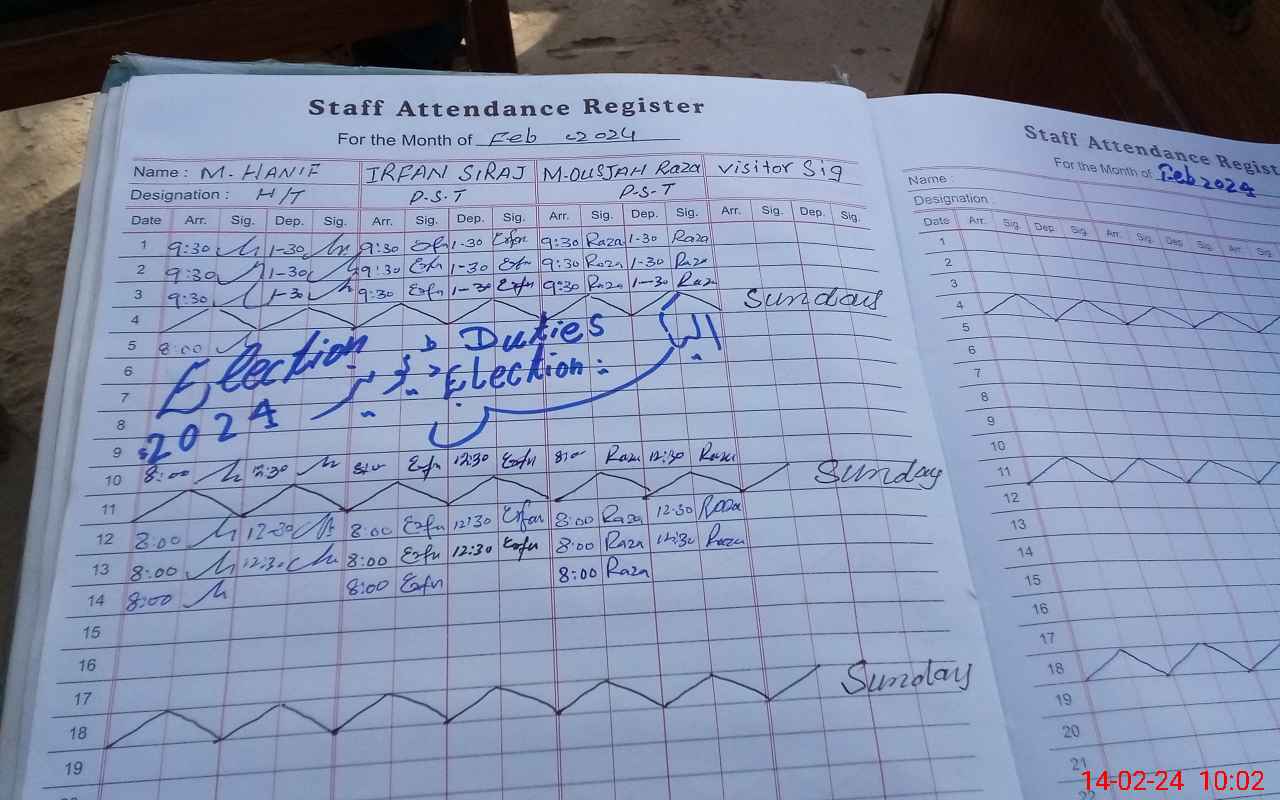 Staff Attendance Register
For the Month of Feb 2024
Name : M. HANIF IRFAN SIRAJ M. OUSJAH Raza visitor Sig
Designation : H/T P.S.T P.S.T
Date Arr. Sig. Dep. Sig. Arr. Sig. Dep. Sig. Arr. Sig. Dep. Sig. Arr. Sig. Dep. Sig.
1 9:30 1-30 9:30 Erfn 1-30 Erfn 9:30 Raza 1-30 Raza
2 9:30 1-30 9:30 Erfn 1-30 Erfn 9:30 Raza 1-30 Raza
3 9:30 1-30 9:30 Erfn 1-30 Erfn 9:30 Raza 1-30 Raza
4 Sunday
5 8:00
6
7
8
9
Election Duties
2024 Election
10 8:00 12:30 Erfn 12:30 Erfn Raza 12:30 Raza
11 Sunday
12 8:00 12-30 8:00 Erfn 12:30 Erfan 8:00 Raza 12-30 Raza
13 8:00 12:30 8:00 Erfn 12:30 Erfn 8:00 Raza 12:30 Raza
14 8:00 8:00 Erfn 8:00 Raza
15
16
17
18 Sunday
19
Staff Attendance Regist
For the Month of Feb 2024
Name :
Designation
Date Arr. Sig. Dep. Sig. Arr. Sig. Dep. Sig. Arr. Sig.
1
2
3
4
5
6
7
8
9
10
11
12
13
14
15
16
17
18
19
20
21
14-02-24 10:02